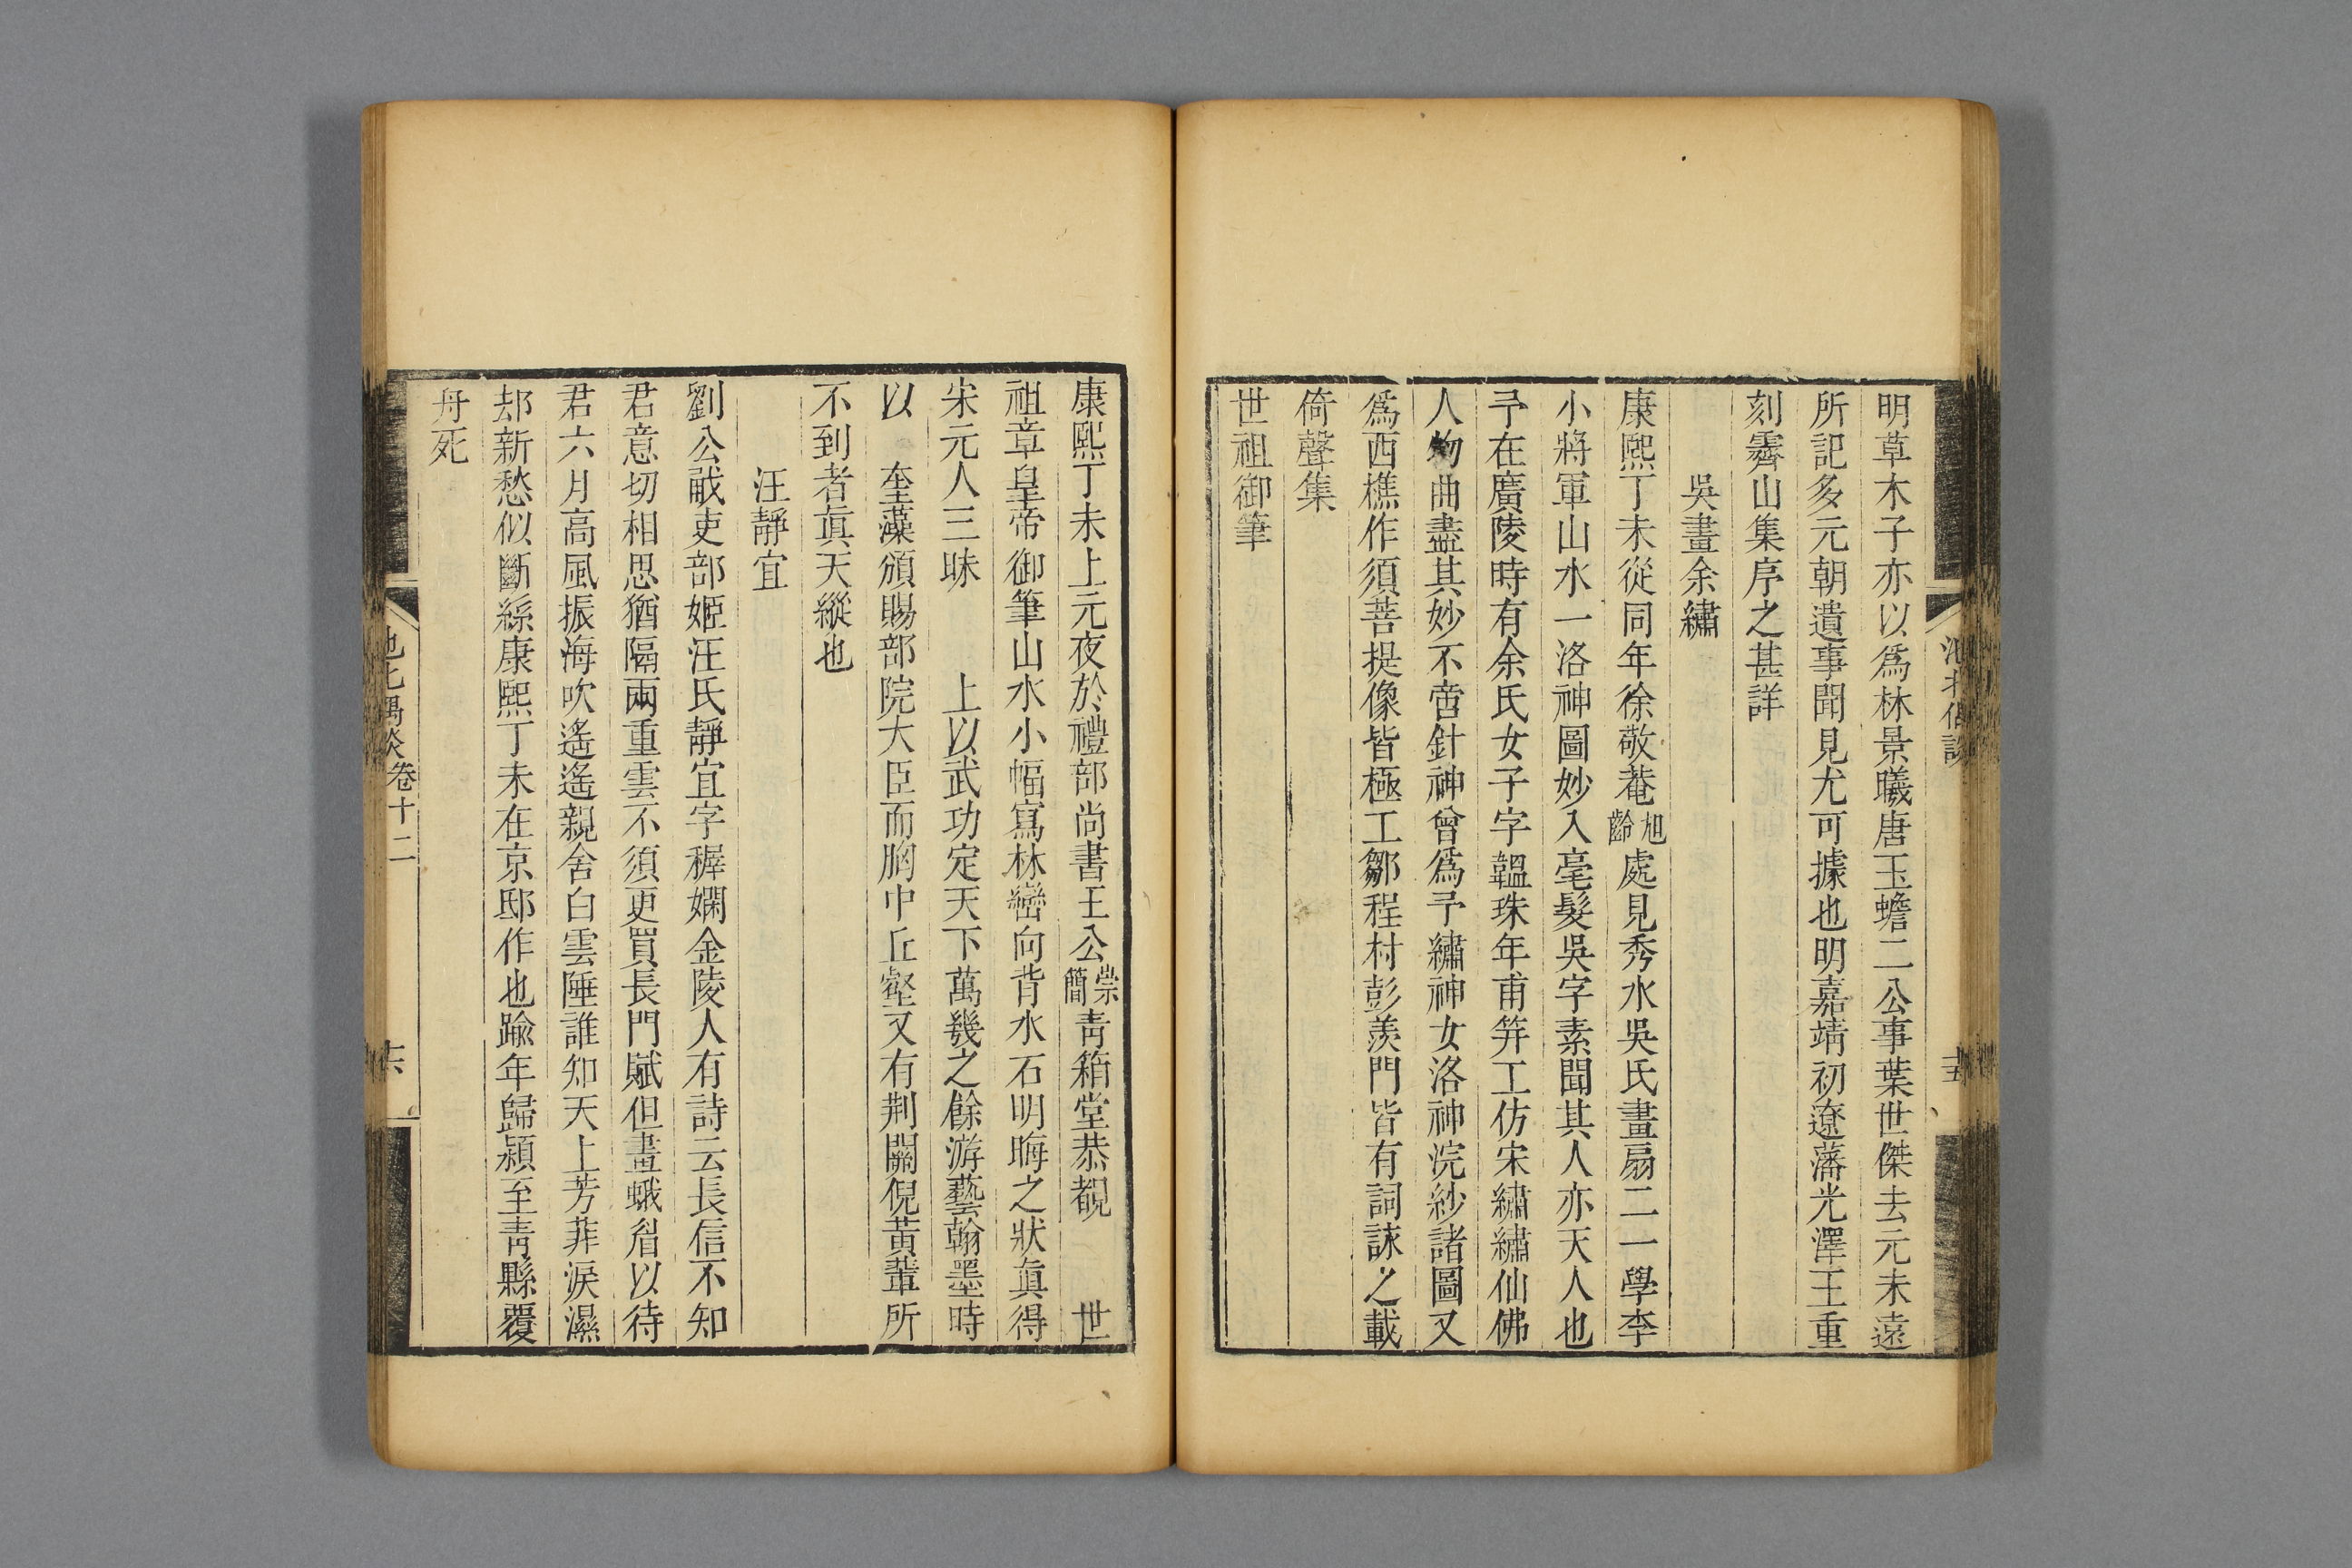 明草木子亦以爲林景曦唐玉蟾二公事葉世傑去元未遠
所記多元朝遺事聞見尤可據也明嘉靖初遼藩光澤王重
刻霽山集序之甚詳
吳畫余繡
康熙丁未從同年徐敬菴旭齡處見秀水吳氏畫扇二一學李
小將軍山水一洛神圖妙入毫髮吳字素聞其人亦天人也
予在廣陵時有余氏女子字韞珠年甫筓工仿宋繡繡仙佛
人物曲盡其妙不啻針神曾爲予繡神女洛神浣紗諸圖又
爲西樵作須菩提像皆極工鄒程村彭羨門皆有詞詠之載
倚聲集
世祖御筆
康熙丁未上元夜於禮部尚書王公崇簡青箱堂恭覩 世
祖章皇帝御筆山水小幅寫林巒向背水石明晦之狀眞得
宋元人三昧 上以武功定天下萬幾之餘游藝翰墨時
以 奎藻頒賜部院大臣而胸中丘壑又有荆關倪黃輩所
不到者眞天縱也
汪靜宜
劉公㦷吏部姬汪氏靜宜字穉嫻金陵人有詩云長信不知
君意切相思猶隔兩重雲不須更買長門賦但畫蛾眉以待
君六月高風振海吹遙遙親舍白雲陲誰知天上芳菲淚濕
却新愁似斷絲康熙丁未在京邸作也踰年歸潁至青縣覆
舟死
池北偶談卷十二